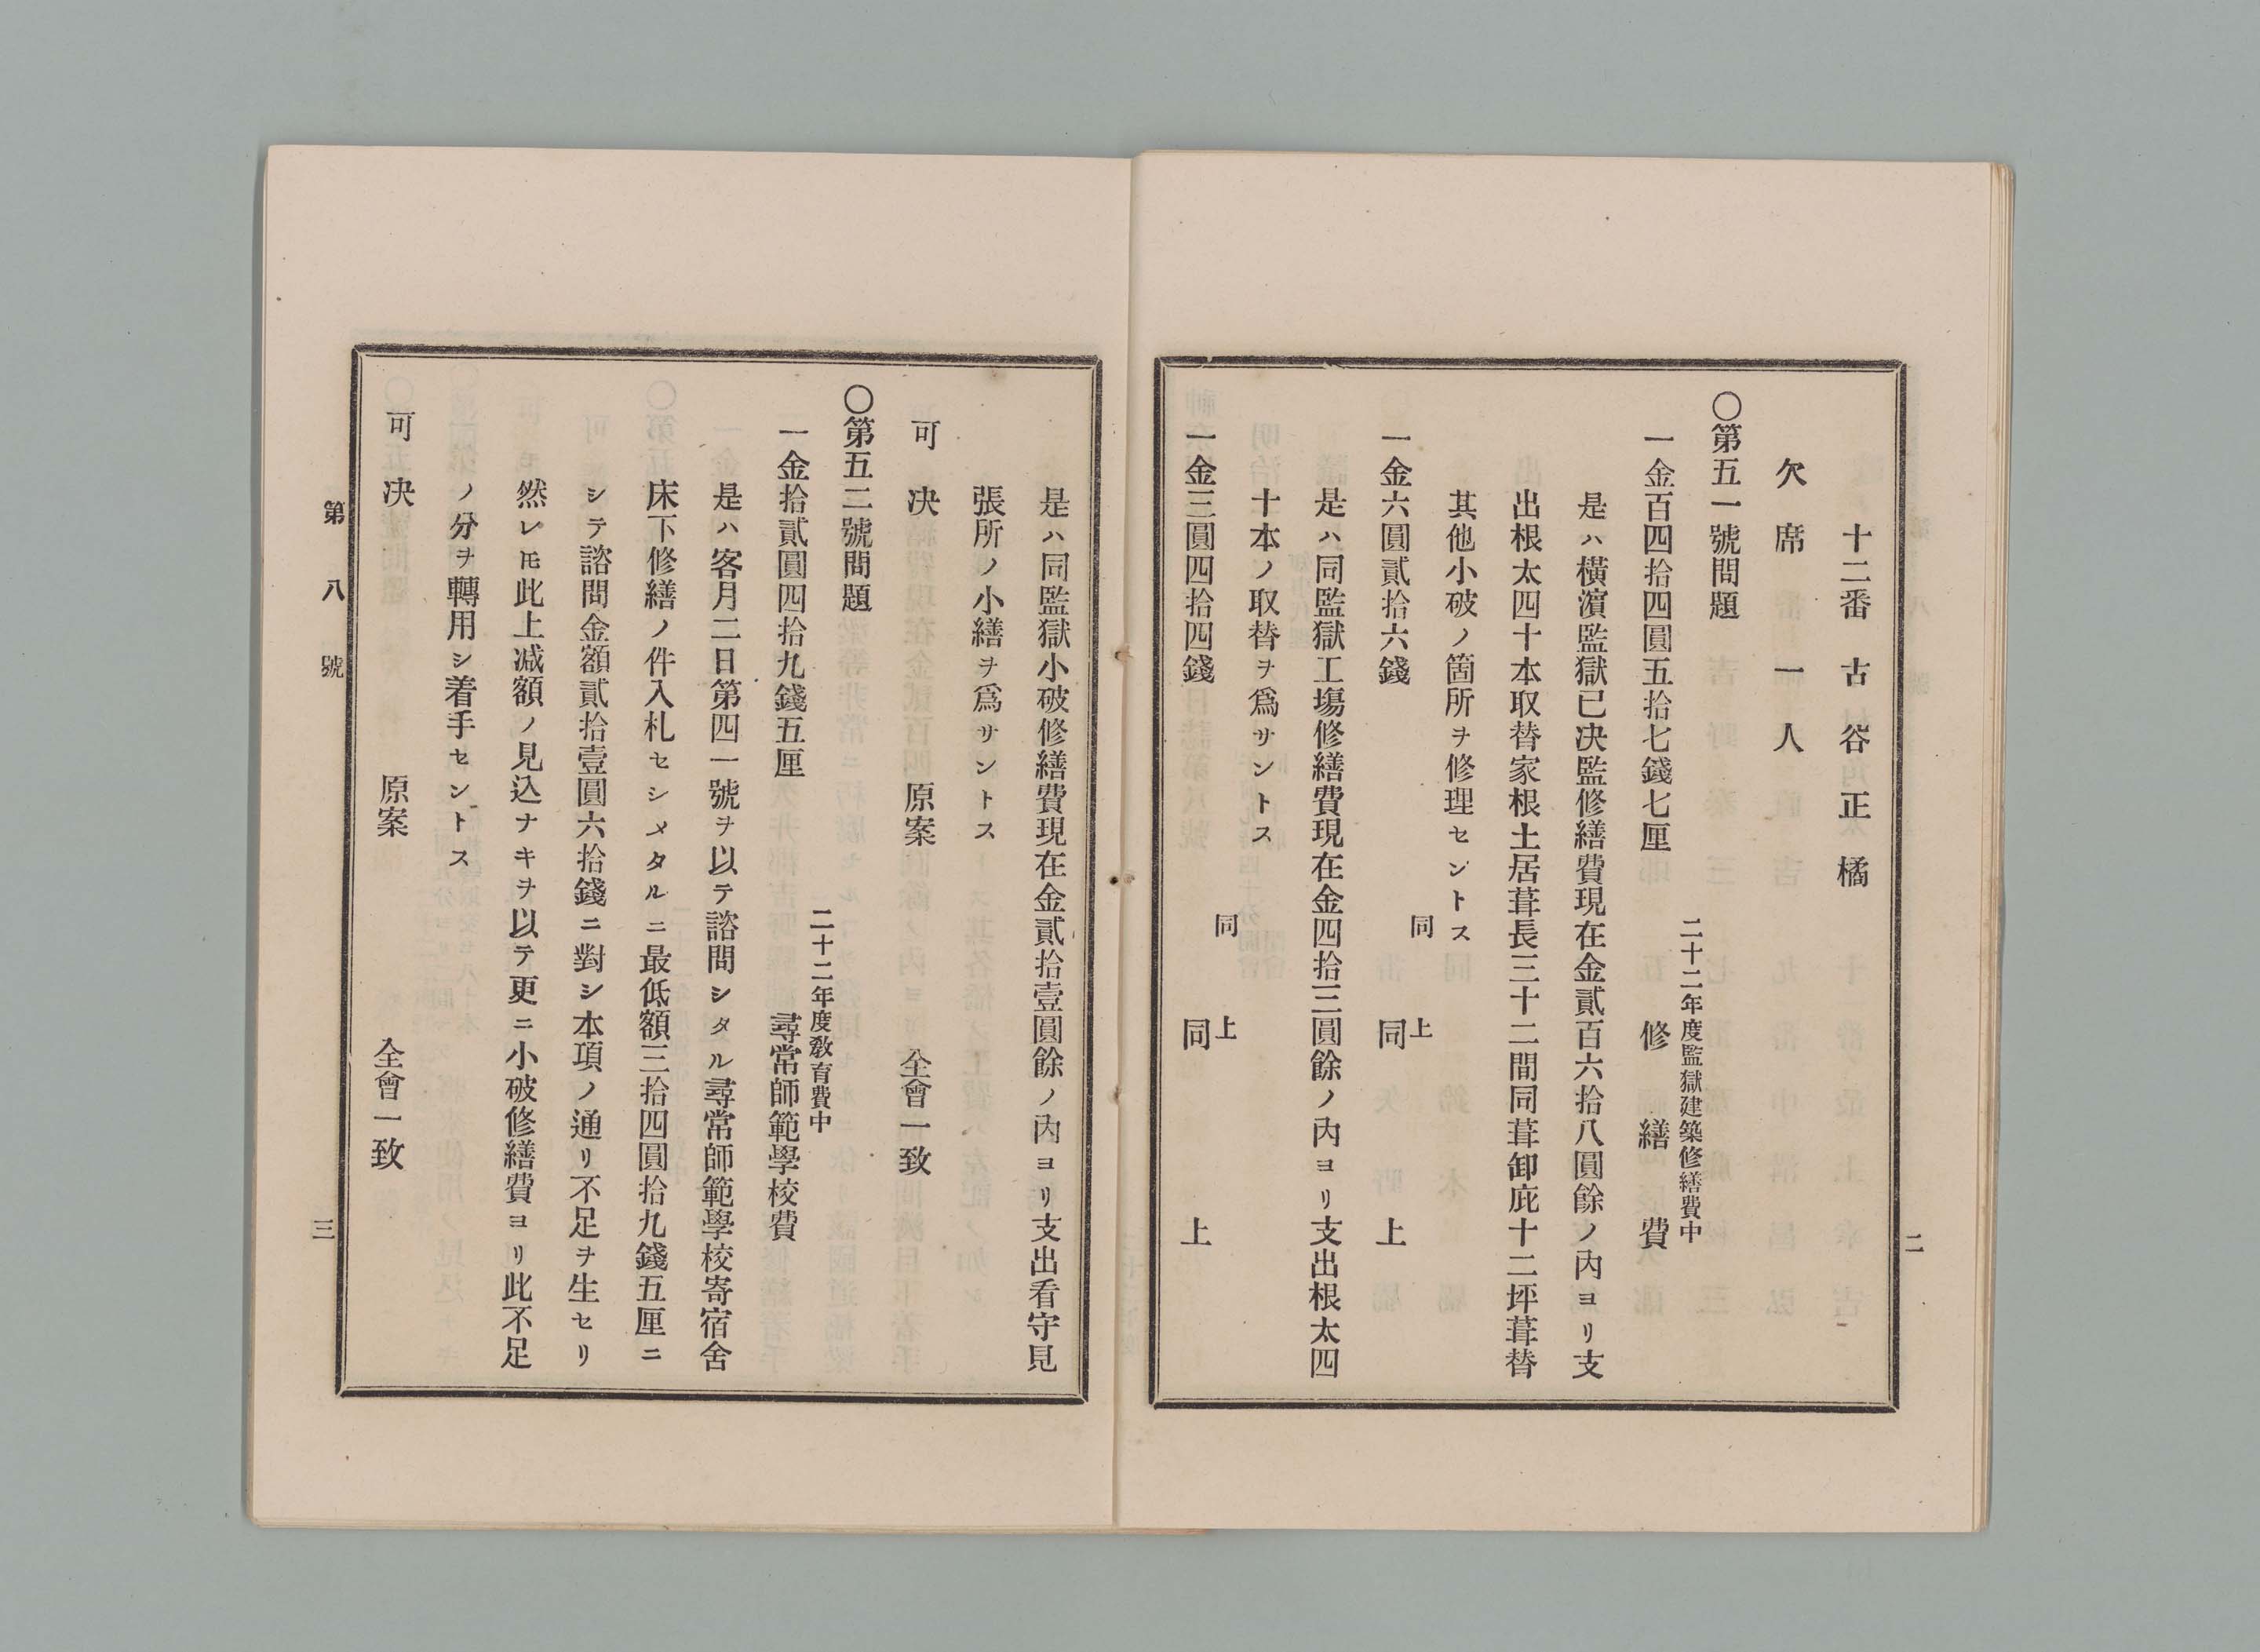 二
十二番　古谷正橘
欠席一人
〇第五一號問題
二十二年度監獄建築修繕費中
一金百四拾四圓五拾七錢七厘　修繕費
是ハ橫濵監獄已决監修繕費現在金貳百六拾八圓餘ノ內ヨリ支
出根太四十本取替家根土居葺長三十二間同葺卸庇十二坪葺替
其他小破ノ箇所ヲ修理セントス
同上
一金六圓貳拾六錢　同上
是ハ同監獄工塲修繕費現在金四拾三圓餘ノ內ヨリ支出根太四
十本ノ取替ヲ爲サントス
同上
一金三圓四拾四錢　同上
是ハ同監獄小破修繕費現在金貳拾壹圓餘ノ內ヨリ支出看守見
張所ノ小繕ヲ爲サントス
可决　原案　全會一致
〇第五二號問題
二十二年度敎育費中
一金拾貳圓四拾九錢五厘　尋常師範學校費
是ハ客月二日第四一號ヲ以テ諮問シタル尋常師範學校寄宿舍
床下修繕ノ件入札セシメタルニ最低額三拾四圓拾九錢五厘ニ
シテ諮問金額貳拾壹圓六拾錢ニ對シ本項ノ通リ不足ヲ生セリ
然レ𪜈此上减額ノ見込ナキヲ以テ更ニ小破修繕費ヨリ此不足
ノ分ヲ轉用シ着手セントス
可决　原案　全會一致
第八號　三